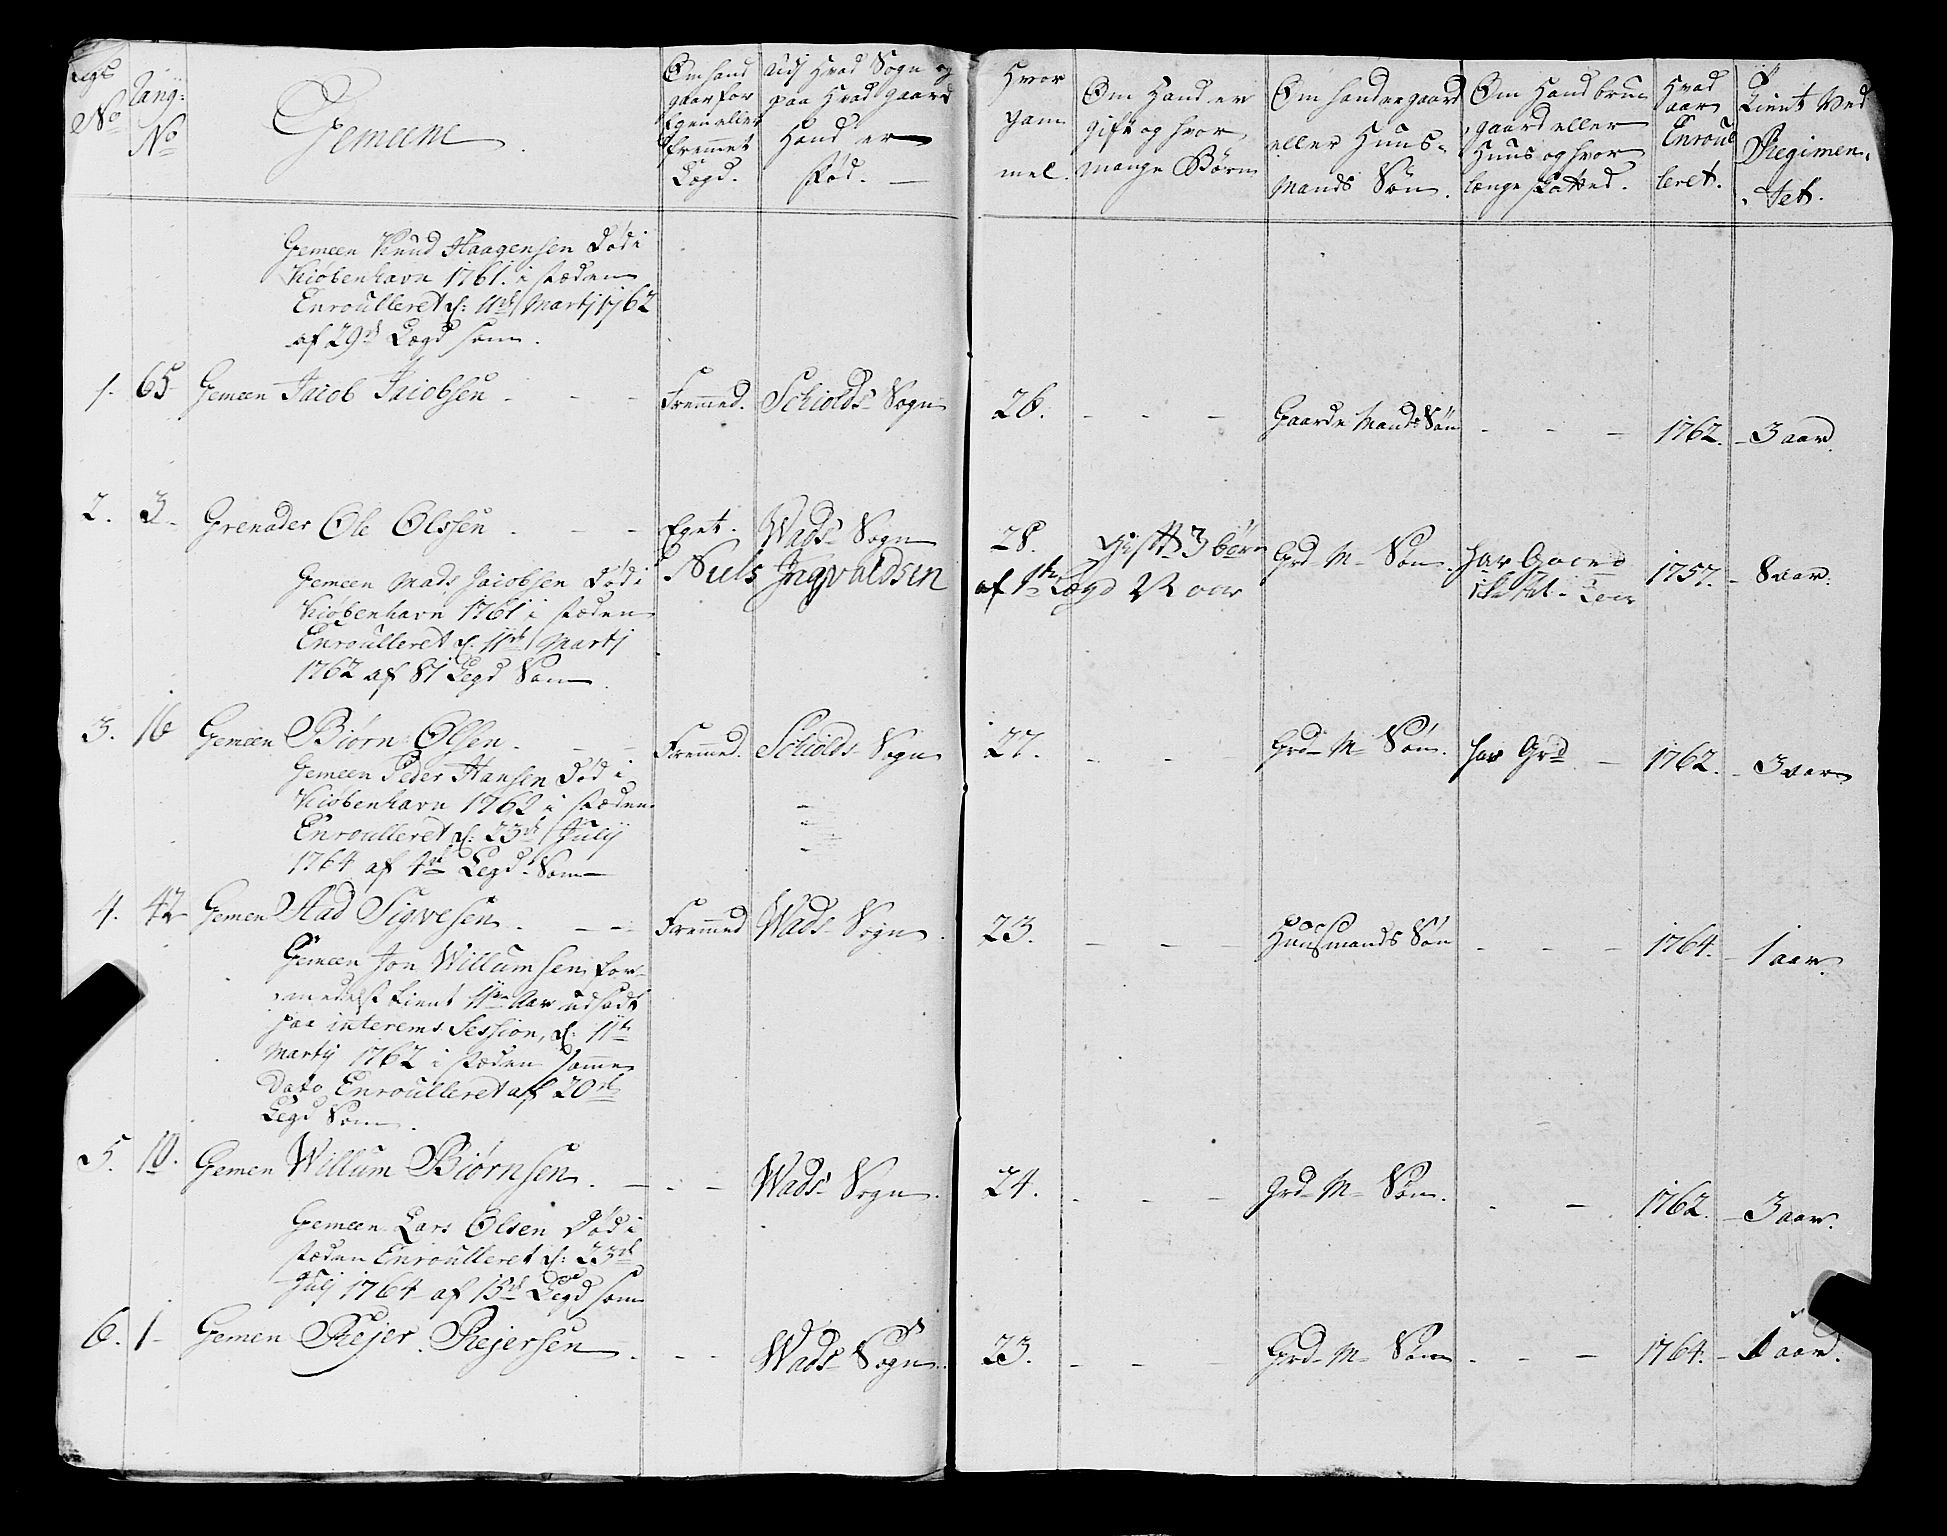 Legs No
Rang: No
Gemeene
Om hand gaar for Egen eller fremmet Lægd.
Udj Hvad Sogn og paa Hvad gaard Hand er fød.
Hvor gammel.
Om Hand er gift og hvor mange Børn
Om hand er gaard eller Huus-Mands Søn.
Om Hand bruger gaard eller Huus og hvor længe
Hvad aar Enroulleret.
Tient Ved Regimentet.
Gemeen Knud Haagensen Død i
Kiøbenhavn 1761. i stæden
Enroulleret d: 11te Martj 1762
af 29de Lægd som.
1. 65 Gemeen Jacob Jacobsen - - - Fremmed. Schiolds Sogn 26. - - - Gaarde Mands Søn - - - 1762. - 3 aar.
2. 3 Grenader Ole Olssen - - Eget. Wads Sogn 28. Gift 3 børn Grd M- Søn. har Gaard 1757. - 8 aar.
Niels Ingvaldsen af 1te Lægd aar
Gemeen Mads Jacobsen Død i
Kiøbenhavn 1761 i stæden
Enroulleret d: 11te Martj
1762 af 87 Legd Som
3. 16 Gemeen Biørn Olsen. - - Fremmed. Schiolds Sogn 27. - - - Grd- M- Søn. har Grd - 1762. - 3 aar
Gemeen Peder Hansen Død i
Kiøbenhavn 1762 i stæden
Enroulleret d: 23de Julij
1764 af 4de Legd Som
4. 42 Gemen Aad Sigvesen. - - Fremmed Wads- Sogn. 23. - - - Huusmands Søn - - - 1764. - 1 aar.
Gemeen Jon Willumsen for-
medelst tient 11ve Aar udsadt
paa interems Session, d: 11te
Martij 1762 i stæden samme
Dato Enroulleret af 20de
Legd Som.
5. 10. Gemen Willum Biørnsen. - - - Wads- Sogn. 24. - - - Grd- M- Søn. - - 1762. - 3 aar.
Gemeen Lars Olsen Død i
stæden Enroulleret d: 23de
Julj 1764 af 13de Legd som
6. 1- Gemen Rejer Rejersen. - - Wads- Sogn. 23. - - Grd- M- Søn - - - 1764. - 1 aar.